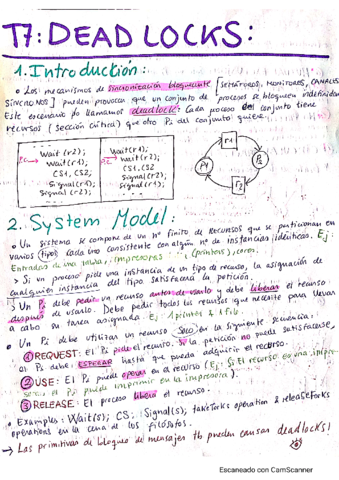 T7: DEADLOCKS:
1. Introducción:
• Los mecanismos de sincronización bloqueante [SEMÁFOROS, MONITORES, CANALES
SÍNCRONOS] pueden provocar que un conjunto de procesos se bloqueen indefinidam
Este escenario lo llamamos deadlock: Cada proceso del conjunto tiene
recursos (sección crítica) que otro Pi del conjunto quiere.
Wait(r2);
Wait(r1);
CS1, CS2
Signal(r1);
Signal(r2);
Wait(r1);
Wait(r2);
CS1, CS2
Signal(r2);
Signal(r1);
r1
P1
P2
r2
2. System Model:
• Un sistema se compone de un nº finito de recursos que se particionan en
varios (tipos) cada uno consistente con algún nº de instancias idénticas. Ej:
Entradas de una tabla, impresoras (printers), cores.
> Si un proceso pide una instancia de un tipo de recurso, la asignación de
cualquier instancia del tipo satisfará la petición.
> Un Pi debe pedir un recurso antes de usarlo y debe liberar el recurso
después de usarlo. Debe pedir todos los recursos que necesite para llevar
a cabo su tarea asignada. Ej: 2 printers & 1 file.
• Un Pi debe utilizar un recurso solo en la siguiente secuencia:
① REQUEST: El Pi pide el recurso. Si la petición no puede satisfacerse,
el Pi debe ESPERAR hasta que pueda adquirir el recurso.
② USE: El Pi puede operar en el recurso (Ej: Si el recurso es una impre
sora, el Pi puede imprimir en la impresora).
③ RELEASE: El proceso libera el recurso.
• Examples: Wait(s); CS; Signal(s); takeforks operation & releaseForks
operations en la cena de los filósofos.
→ Las primitivas de bloqueo de mensajes tb pueden causar deadlocks!
Escaneado con CamScanner